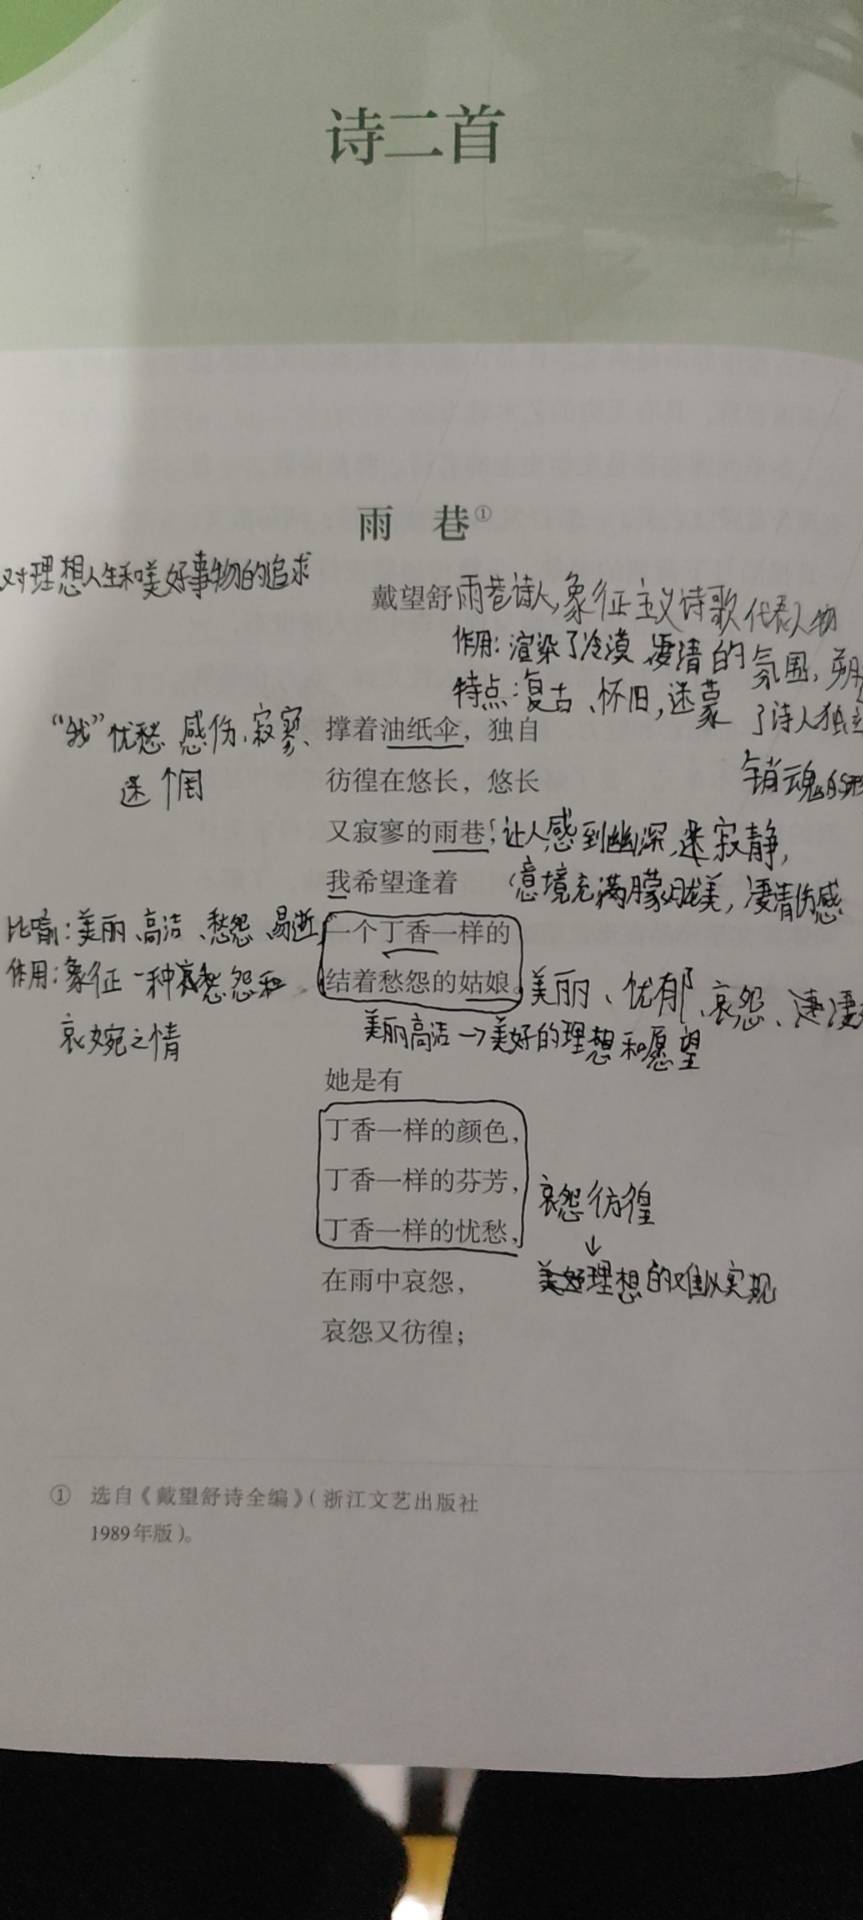 诗二首
雨巷①
对理想人生和美好事物的追求
戴望舒 雨巷诗人,象征主义诗歌代表人物
作用:渲染了冷漠、凄清的氛围,
特点:复古、怀旧,迷蒙 了诗人独
销魂的形
“我”忧愁、感伤、寂寥、
迷惘
撑着油纸伞,独自
彷徨在悠长,悠长
又寂寥的雨巷, 让人感到幽深、寂静,
我希望逢着 意境充满朦胧美,凄清伤感
比喻:美丽、高洁、愁怨、易逝
一个丁香一样的
作用:象征一种愁怨和
结着愁怨的姑娘。 美丽、忧郁、哀怨、凄
哀婉之情
美丽高洁→美好的理想和愿望
她是有
丁香一样的颜色,
丁香一样的芬芳, 哀怨彷徨
丁香一样的忧愁, ↓
在雨中哀怨, 美好理想的难以实现
哀怨又彷徨;
① 选自《戴望舒诗全编》(浙江文艺出版社
1989年版)。